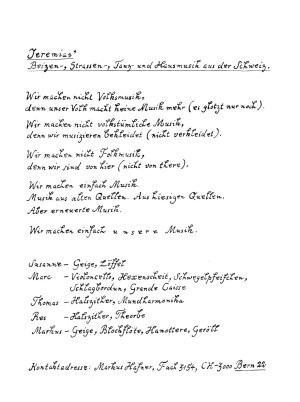 Jeremias'
Beizen-, Strassen-, Tanz- und Hausmusik aus der Schweiz.
Wir machen nicht Volksmusik,
denn unser Volk macht keine Musik mehr (es glotzt nur noch).
Wir machen nicht volkstümliche Musik,
denn wir musizieren bekleidet (nicht verkleidet).
Wir machen nicht Folkmusik,
denn wir sind von hier (nicht von there).
Wir machen einfach Musik.
Musik aus alten Quellen. Aus hiesigen Quellen.
Aber erneuerte Musik.
Wir machen einfach unsere Musik.
Susanne - Geige, Löffel
Marc - Violoncello, Hexenscheit, Schwegelpfeifchen,
Schlagbordun, Grande Caisse
Thomas - Halszither, Mundharmonika
Res - Halszither, Theorbe
Markus - Geige, Blochflöte, Hanottere, Geröll
Kontaktadresse: Markus Hafner, Fach 3154, CH-3000 Bern 22